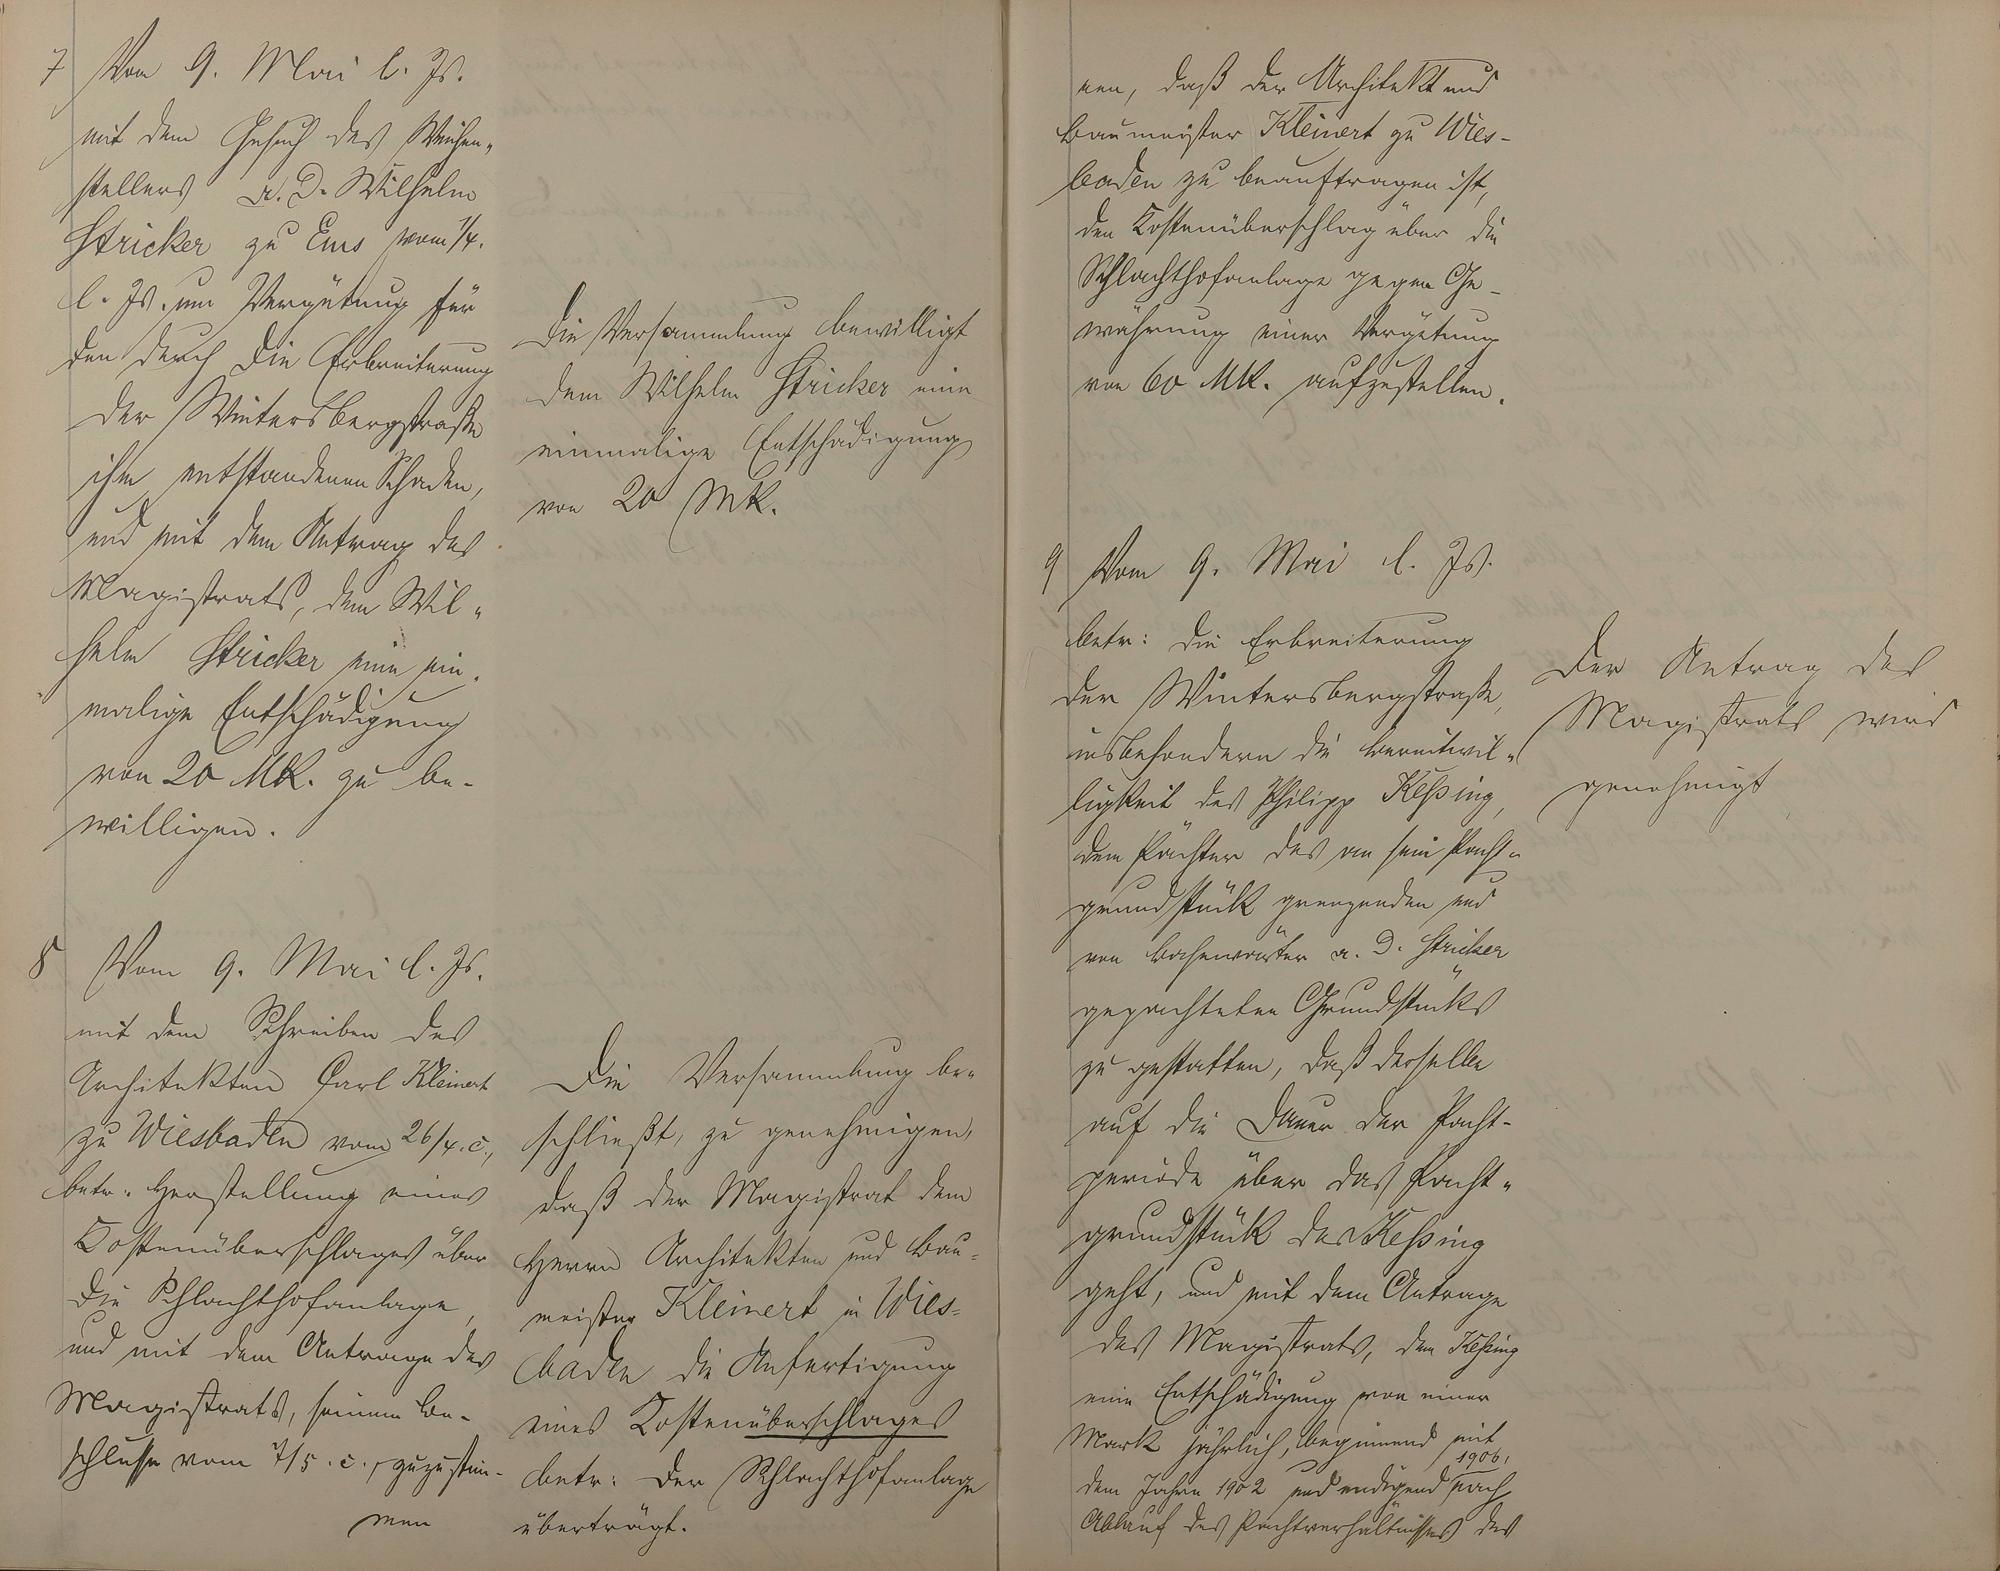 7 Vom 9. Mai l. Js.
mit dem Gesuch des Weichen-
stellers a. D. Wilhelm
Stricker zu Ems vom 1/4.
l. Js. um Vergütung für
den durch die Erbreiterung
der Wintersbergstraße
ihm entstandenen Schaden,
und mit dem Antrag des
Magistrats, dem Wil-
helm Stricker eine ein-
malige Entschädigung
von 20 Mk. zu be-
willigen.
Die Versammlung bewilligt
dem Wilhelm Stricker eine
einmalige Entschädigung
von 20 Mk.
8 Vom 9. Mai l. Js.
mit dem Schreiben des
Architekten Carl Kleinert
zu Wiesbaden vom 26/4. c.,
betr. Herstellung eines
Kostenüberschlages über
die Schlachthofanlage,
und mit dem Antrage des
Magistrats, seinem Be-
schlusse vom 7/5. c., zuzustim-
men
Die Versammlung be-
schließt, zu genehmigen,
daß der Magistrat dem
Herrn Architekten und Bau-
meister Kleinert in Wies-
baden die Anfertigung
eines Kostenüberschlages
betr: der Schlachthofanlage
überträgt.
nen, daß der Architekt und
Baumeister Kleinert zu Wies-
baden zu beauftragen ist,
den Kostenüberschlag über die
Schlachthofanlage gegen Ge-
währung einer Vergütung
von 60 Mk. aufzustellen.
9 Vom 9. Mai l. Js.
betr: die Erbreiterung
der Wintersbergstraße,
insbesondern die Bereitwil-
ligkeit des Philipp Keßing,
dem Pächter des an sein Pacht-
grundstück grenzenden und
von Bahnwärter a. D. Stricker
gepachteten Grundstücks
zu gestatten, daß derselbe
auf die Dauer der Pacht-
periode über das Pacht-
grundstück des Keßing
geht, und mit dem Antrage
des Magistrats, dem Keßing
eine Entschädigung von einer
Mark jährlich, beginnend mit
dem Jahre 1902 und endigend nach 1906,
Ablauf des Pachtverhältnisses des
Der Antrag des
Magistrats wird
genehmigt